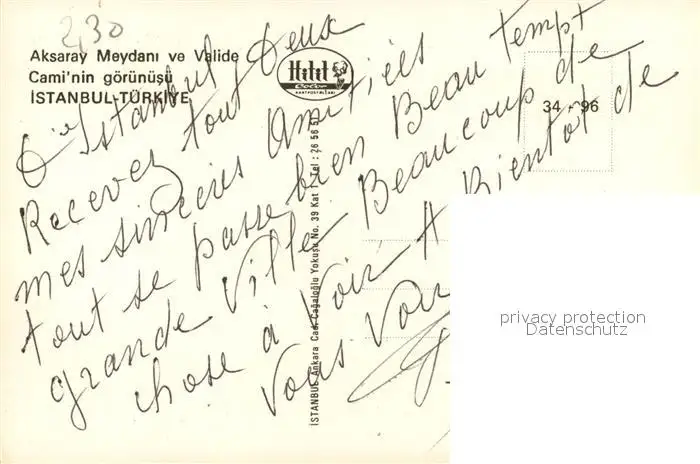 2,30
Aksaray Meydanı ve Valide
Cami'nin görünüşü
İSTANBUL-TÜRKİYE
Hitit
Color
KARTPOSTALLARI
34 - 96
İSTANBUL Ankara Cad. Cağaloğlu Yokuşu No. 39 Kat 1 Tel : 26 56 51
D'Istanbul
Recevez tout Deux
mes sincères Amitiés
tout se passe bien Beau tempt
grande Ville Beaucoup de
chose à Voir A Bientôt de
Vous Voir
privacy protection
Datenschutz